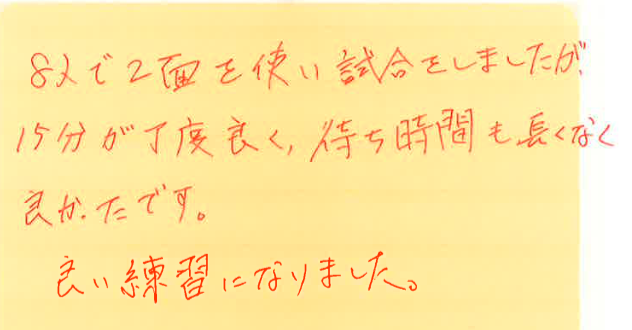 8人で2面を使い試合をしましたが、
15分が丁度良く、待ち時間も長くなく
良かったです。
良い練習になりました。